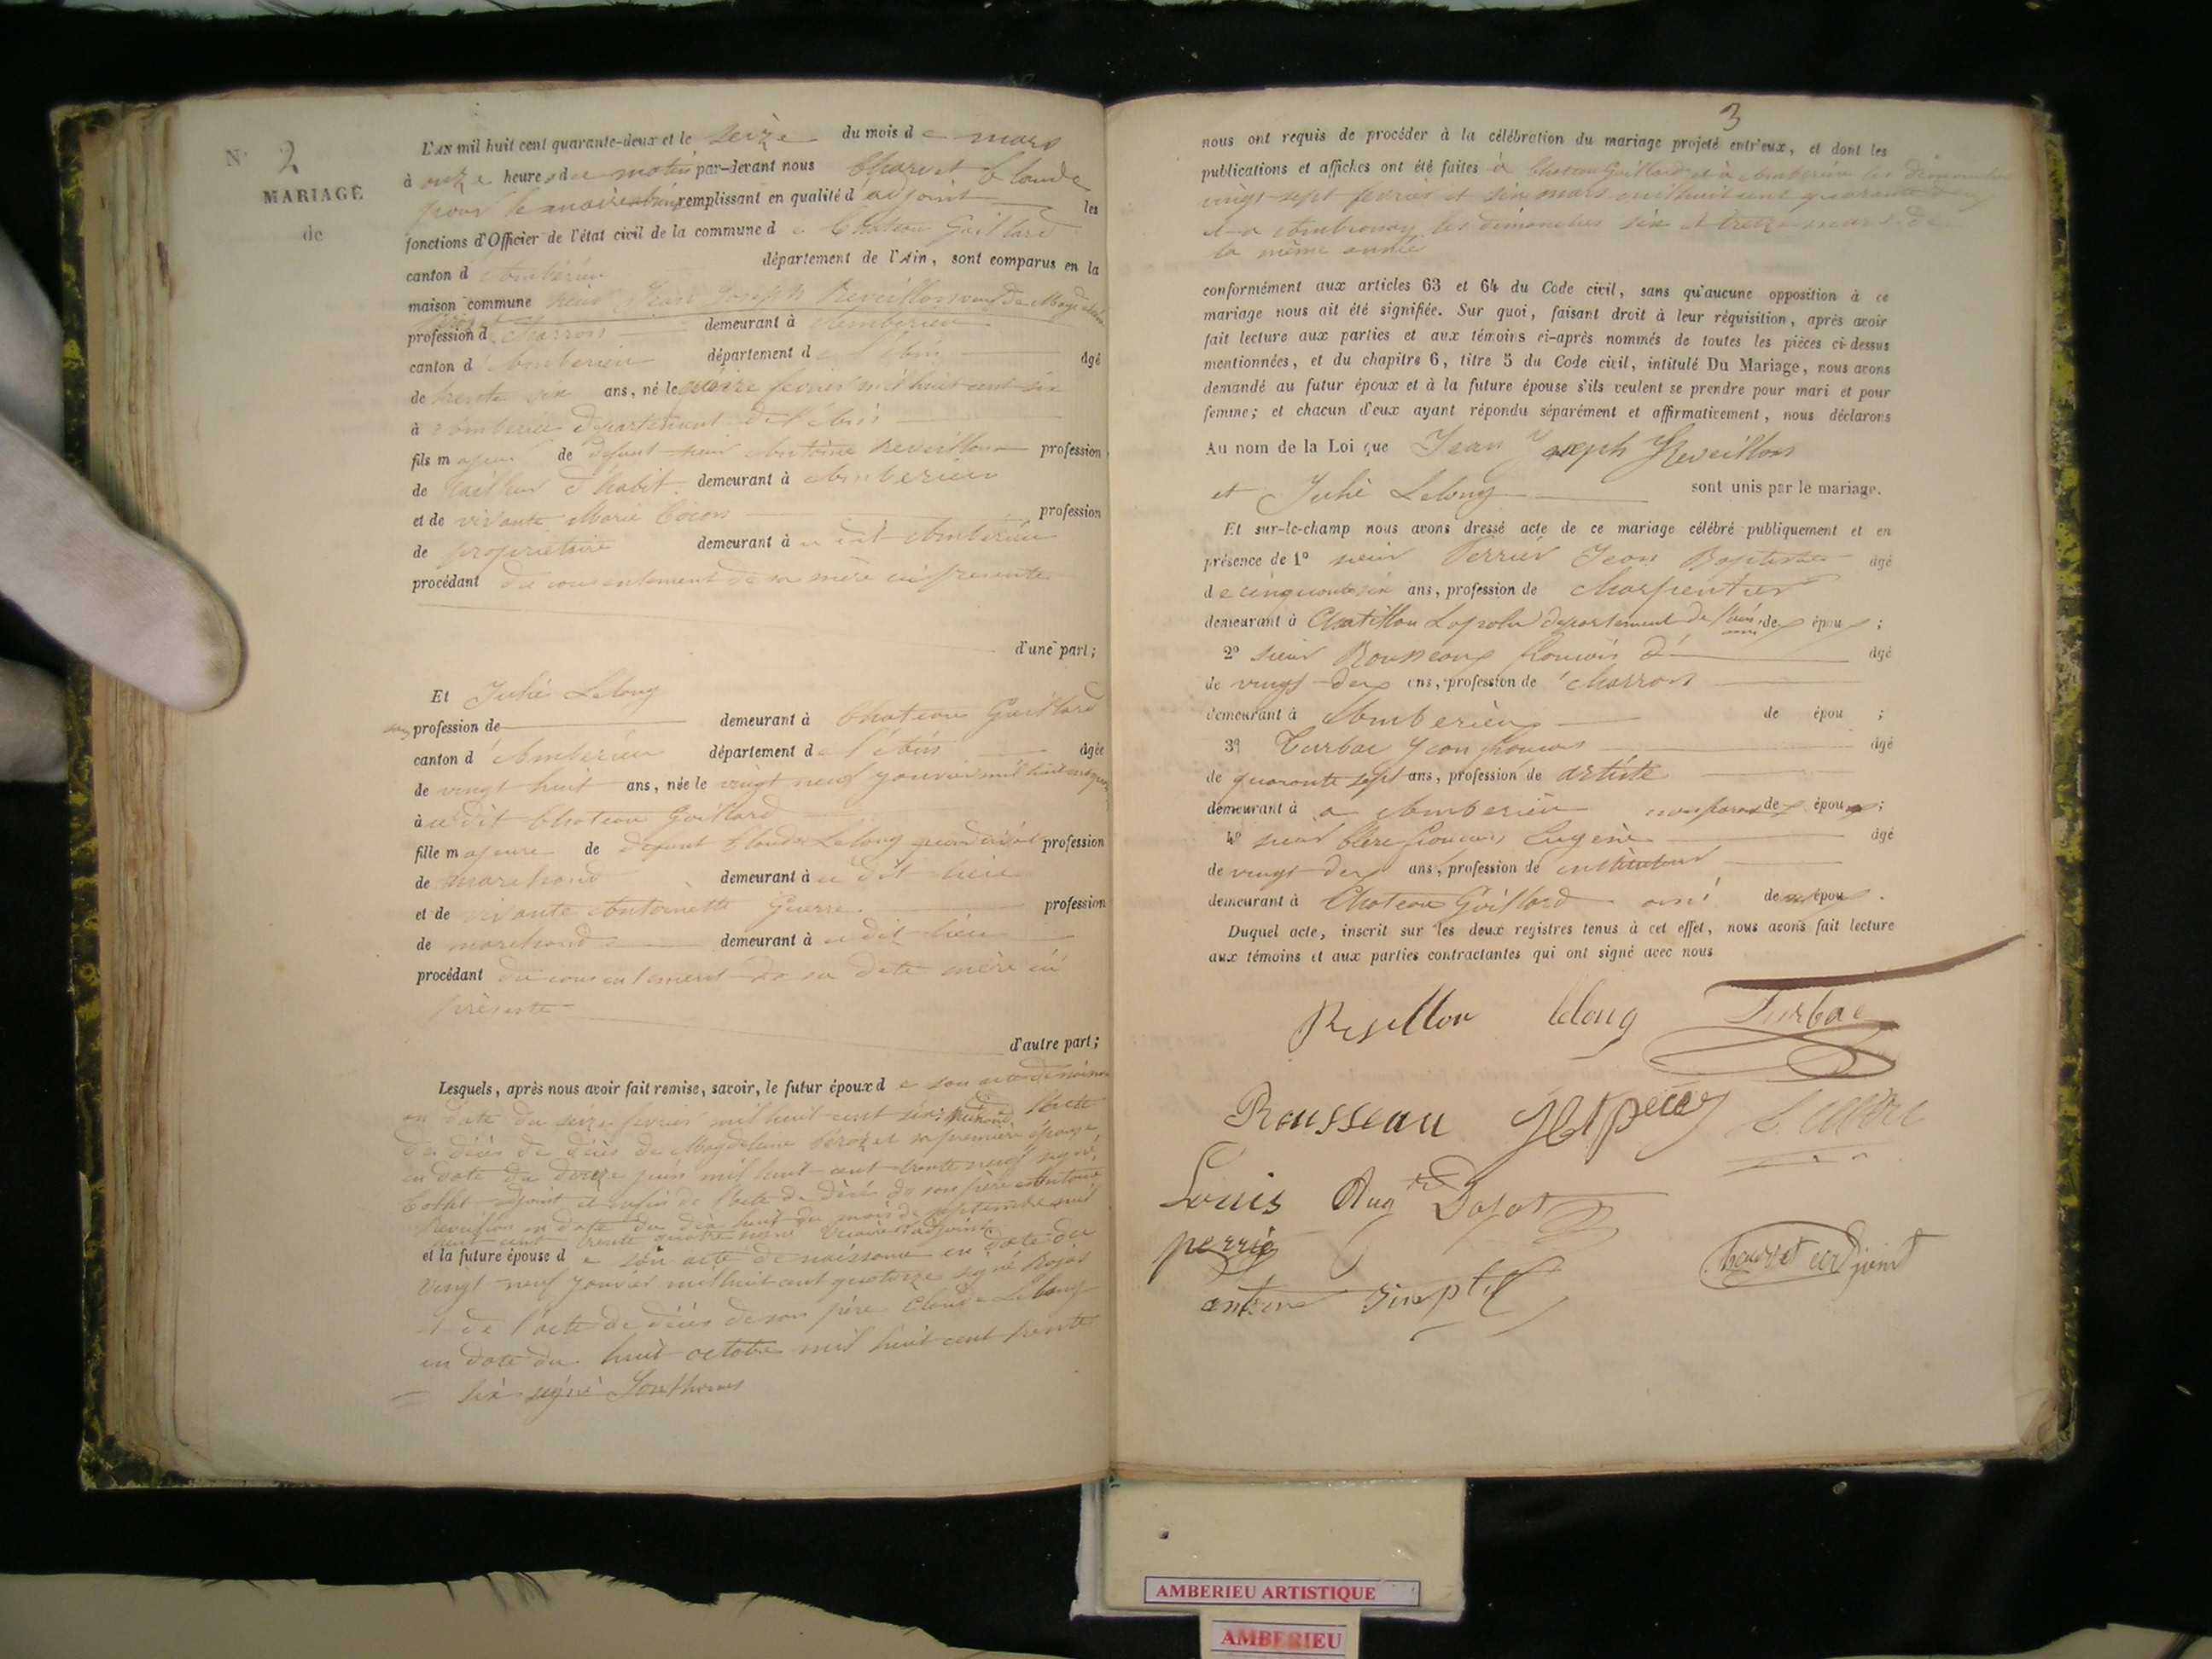 N° 2
MARIAGE
de
L'AN mil huit cent quarante-deux et le seize du mois de mars
à onze heures du matin par-devant nous Charvet Claude
pour le maire remplissant en qualité d'adjoint les
fonctions d'Officier de l'état civil de la commune de Chateau Gaillard
canton d'Ambérieu département de l'Ain, sont comparus en la
maison commune sieur Jean Joseph Reveillon veuf de Magdeleine
profession de charron demeurant à Amberieu
canton d'Amberieu département de l'Ain âgé
de trente six ans, né le seize fevrier mil huit cent six
à Amberieu département de l'Ain
fils majeur de défunt sieur Antoine Reveillon profession
de tailleur d'habit demeurant à Amberieu
et de vivante Marie Cocon profession
de propriétaire demeurant à u dit Amberieu
procédant du consentement de sa mère ici présente
d'une part;
Et Julie Lelong
profession de demeurant à Chateau Gaillard
canton d'Amberieu département de l'Ain âgée
de vingt huit ans, née le vingt neuf janvier mil huit cent
à u dit Chateau Gaillard
fille majeure de défunt Claude Lelong profession
de marchand demeurant à u dit lieu
et de vivante Antoinette Guerre profession
de marchande demeurant à u dit lieu
procédant du consentement de sa dite mère ici
présente
d'autre part;
Lesquels, après nous avoir fait remise, savoir, le futur époux de son acte de naissance
en date du seize fevrier mil huit cent six
du décès de Magdeleine sa première épouse
en date du douze juin mil huit cent trente neuf signé
adjoint et enfin de l'acte de décès de son père Antoine
Reveillon en date du dix huit du mois de septembre mil
huit cent trente quatre signé adjoint
et la future épouse de son acte de naissance en date du
vingt neuf janvier mil huit cent quatorze signé
et de l'acte de décès de son père Claude Lelong
en date du huit octobre mil huit cent trente
six signé
3
nous ont requis de procéder à la célébration du mariage projeté entr'eux, et dont les
publications et affiches ont été faites à Chateau Gaillard et à Amberieu les dimanches
vingt-sept fevrier et six mars mil huit cent quarante deux
et à Ambronay les dimanches six et treize mars de
la même année
conformément aux articles 63 et 64 du Code civil, sans qu'aucune opposition à ce
mariage nous ait été signifiée. Sur quoi, faisant droit à leur réquisition, après avoir
fait lecture aux parties et aux témoins ci-après nommés de toutes les pièces ci-dessus
mentionnées, et du chapitre 6, titre 5 du Code civil, intitulé Du Mariage, nous avons
demandé au futur époux et à la future épouse s'ils veulent se prendre pour mari et pour
femme; et chacun d'eux ayant répondu séparément et affirmativement, nous déclarons
Au nom de la Loi que Jean Joseph Reveillon
et Julie Lelong sont unis par le mariage.
Et sur-le-champ nous avons dressé acte de ce mariage célébré publiquement et en
présence de 1° sieur Perrier Jean Baptiste âgé
de cinquante six ans, profession de charpentier
demeurant à Chatillon Lapalu département de l'Ain de épou ;
2° sieur Rousseau François âgé
de vingt-deux ans, profession de charron
demeurant à Amberieu de épou ;
3° Turbac Jean François âgé
de quarante sept ans, profession de artiste
demeurant à a Amberieu non parent de épou ;
4° sieur Clerc François Eugène âgé
de vingt-deux ans, profession de instituteur
demeurant à Chateau Gaillard ami de épou .
Duquel acte, inscrit sur les deux registres tenus à cet effet, nous avons fait lecture
aux témoins et aux parties contractantes qui ont signé avec nous
Revellon lelong Turbac
Rousseau
Louis Aug
perrié
antoine
Charvet adjoint
AMBERIEU ARTISTIQUE
AMBERIEU